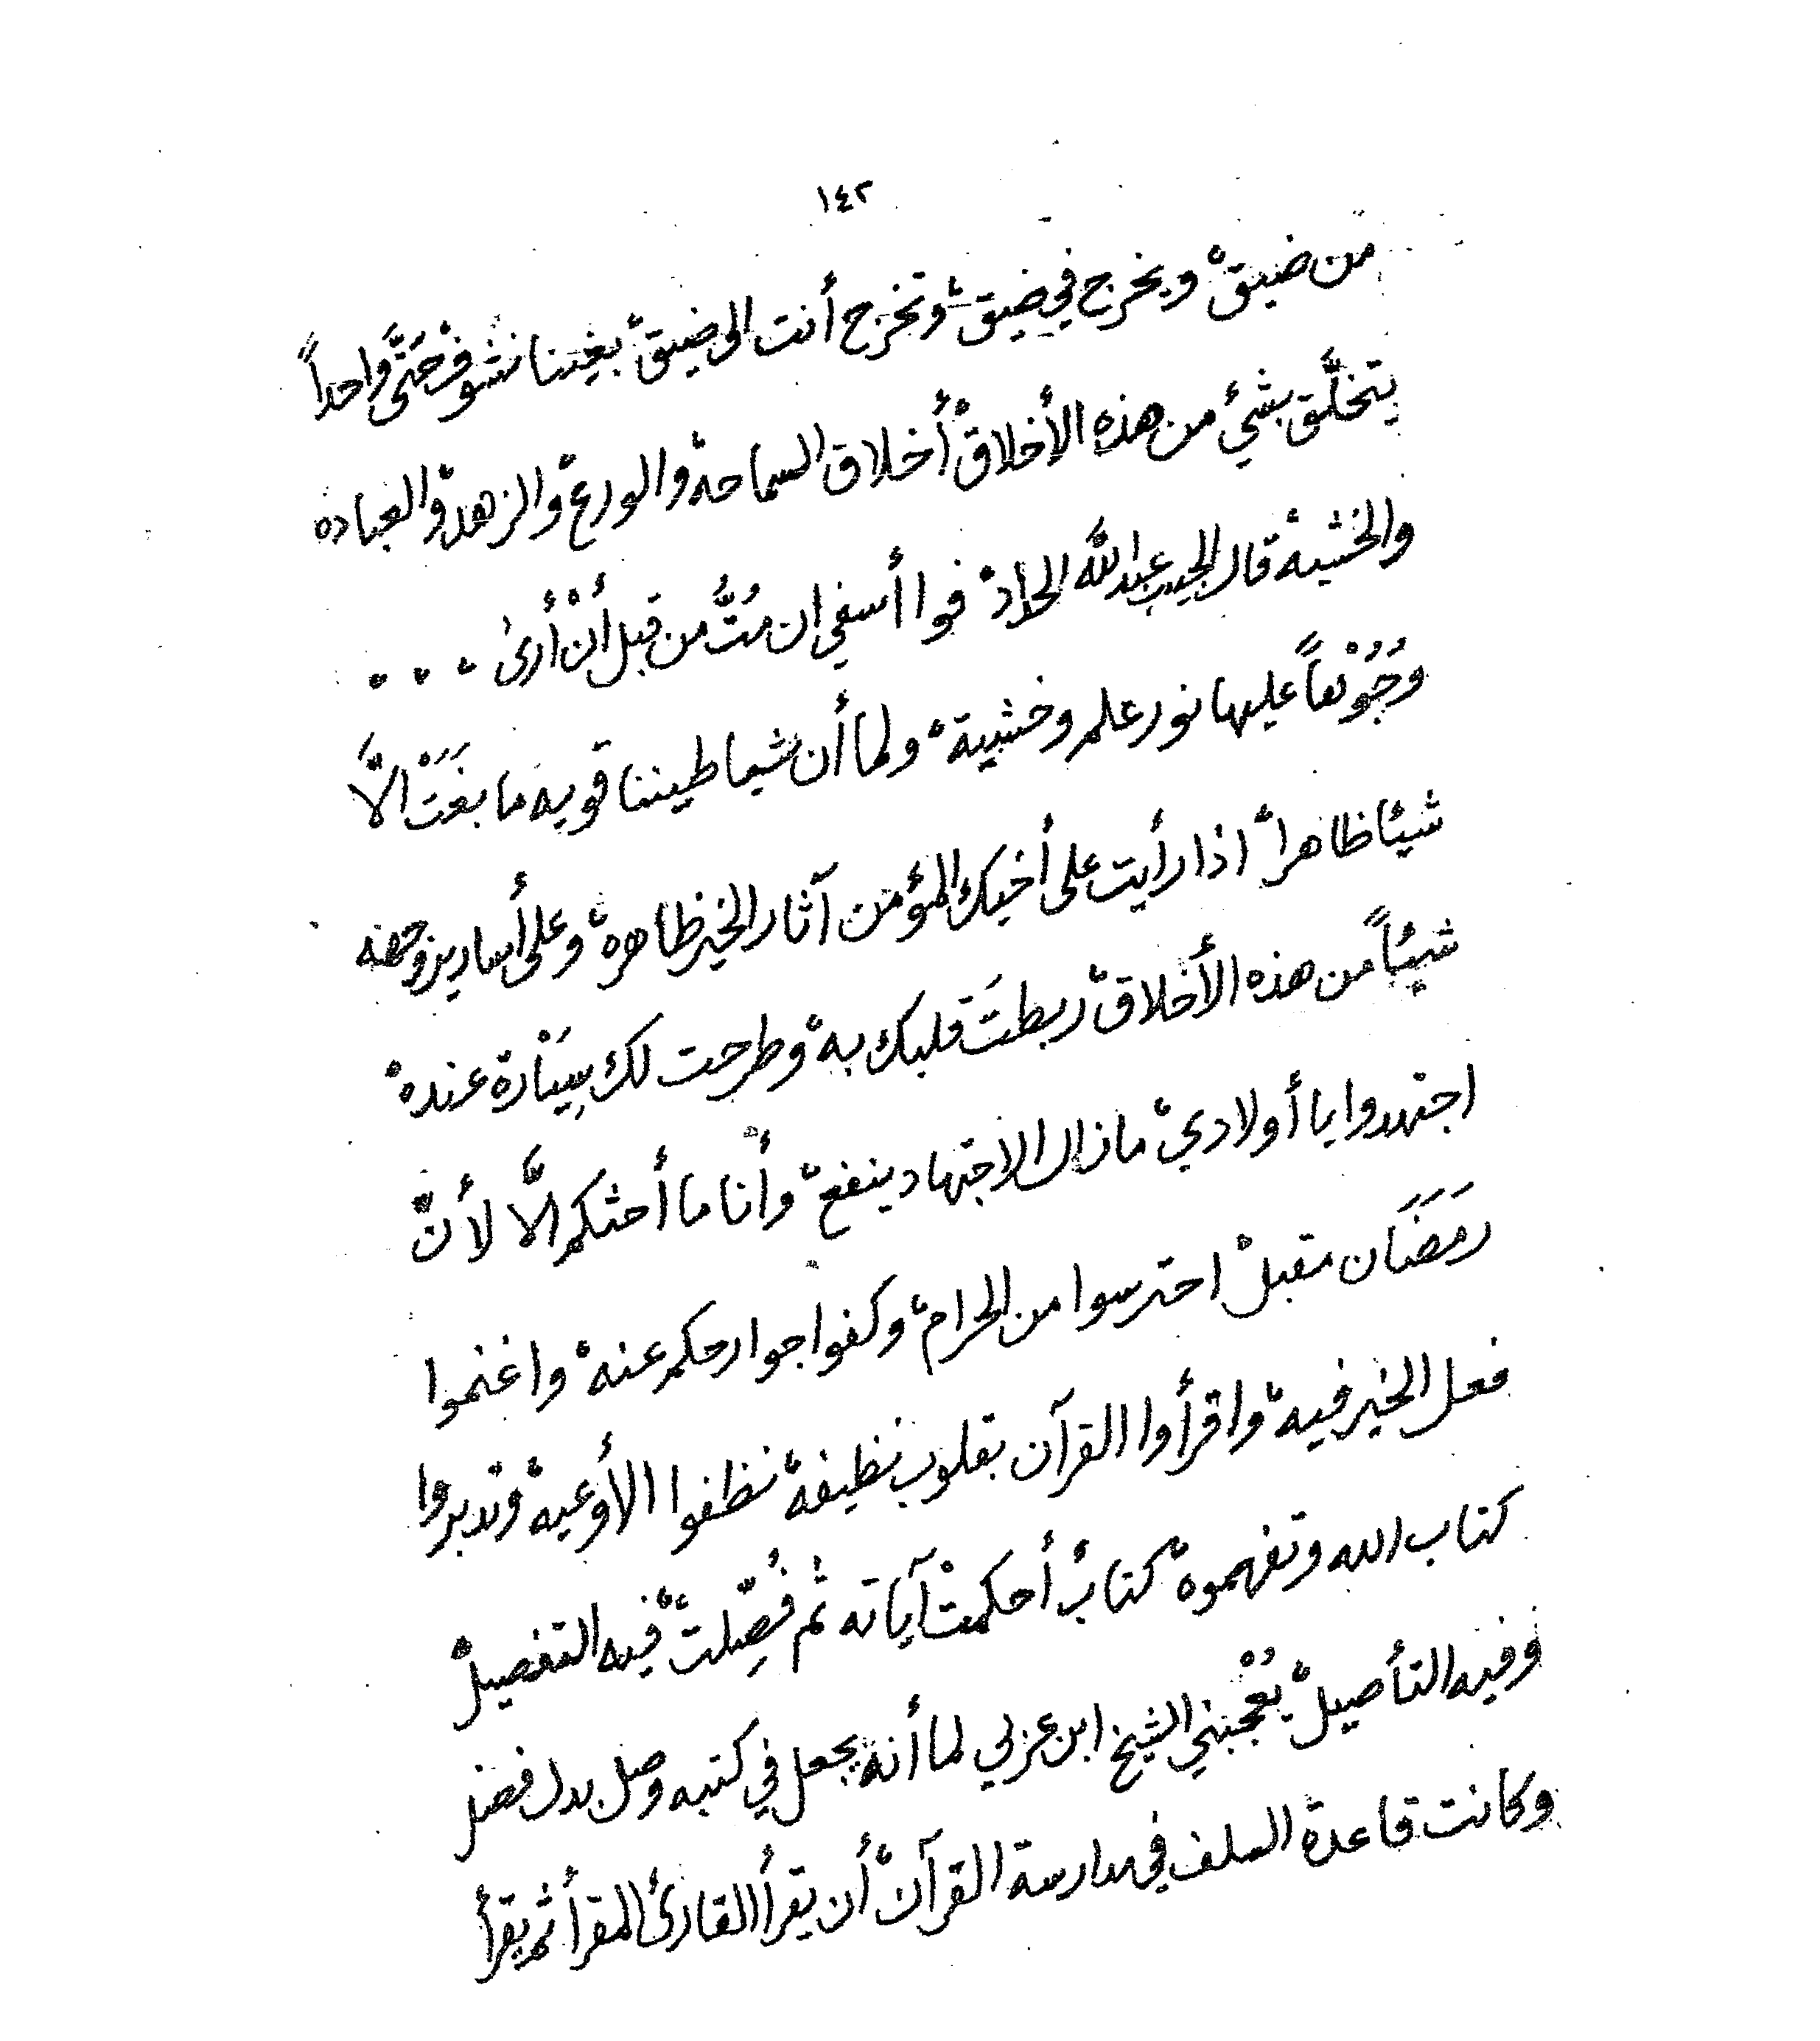 ١٤٢
من ضيق، ويخرج في ضيق، وتخرج أنت الى ضيق، بغينا نشوف حَتَّى واحداً
يتخلَّق بشئ من هذه الأخلاق، أخلاق السماحه، والورع، والزهد، والعباده
والخشيه، قال الحبيب عبدالله الحداد، فوا أسفي ان مُتُّ من قبل أنْ أرىٰ ...
وُجُوْهاً عليها نور علم وخشية، ولما أن شياطيننا قويه ما بغَتْ الَّا
شيئا ظاهرا، اذا رأيت على أخيك المؤمن آثار الخير ظاهره، وعلى أسارير وجهه
شيئاً من هذه الأخلاق، ربطتَ قلبك به، وطرحت لك سِنَارة عنده،
اجتهدوا يا أولادي، ما زال الاجتهاد ينفع، وأنا ما أحثكم الَّا لأنَّ
رمَضَان مقبل، احترسوا من الحرام، وكفوا جوارحكم عنه، واغنموا
فعل الخير فيه، واقرأوا القرآن بقلوب نظيفه، نظفوا الأوعيه، وتدبروا
كتاب الله وتفهموه، كتابٌ أحكمتْ آياته ثم فُصِّلت، فيه التفصيل،
وفيه التأصيل، يُعْجبني الشيخ ابن عربي لما أنه يجعل في كتبه وصل بدل فصل
وكانت قاعدة السلف في مدارسة القرآن، أن يقرأ القارئ المقرأ ثم يقرأ